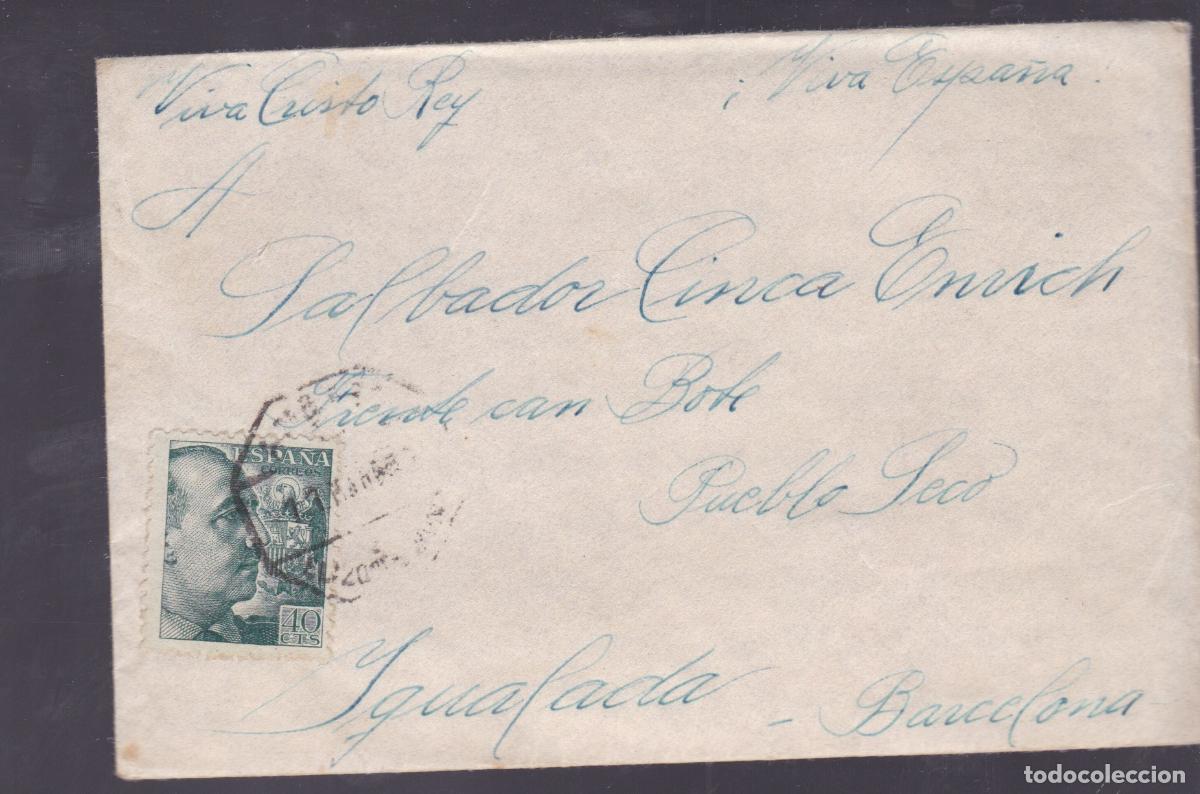 Viva Cristo Rey ¡Viva España.
A
Salbador Cinca Enrich
Frente can Bote
Pueblo Seco
ESPAÑA
CORREOS
40
CTS
Ygualada - Barcelona -
todocoleccion